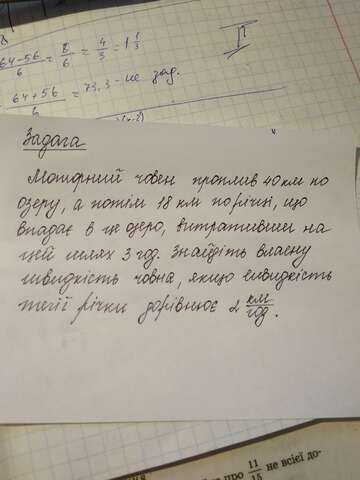 64-56/6 = 8/6 = 4/3 = 1 1/3
64+56/6 = 73,3 - не зад.
Задача
Моторний човен проплив 40 км по
озеру, а потім 18 км по річці, що
впадає в це озеро, витративши на
цей шлях 3 год. Знайдіть власну
швидкість човна, якщо швидкість
течії річки дорівнює 2 км/год.
про 11/15 не всієї до-